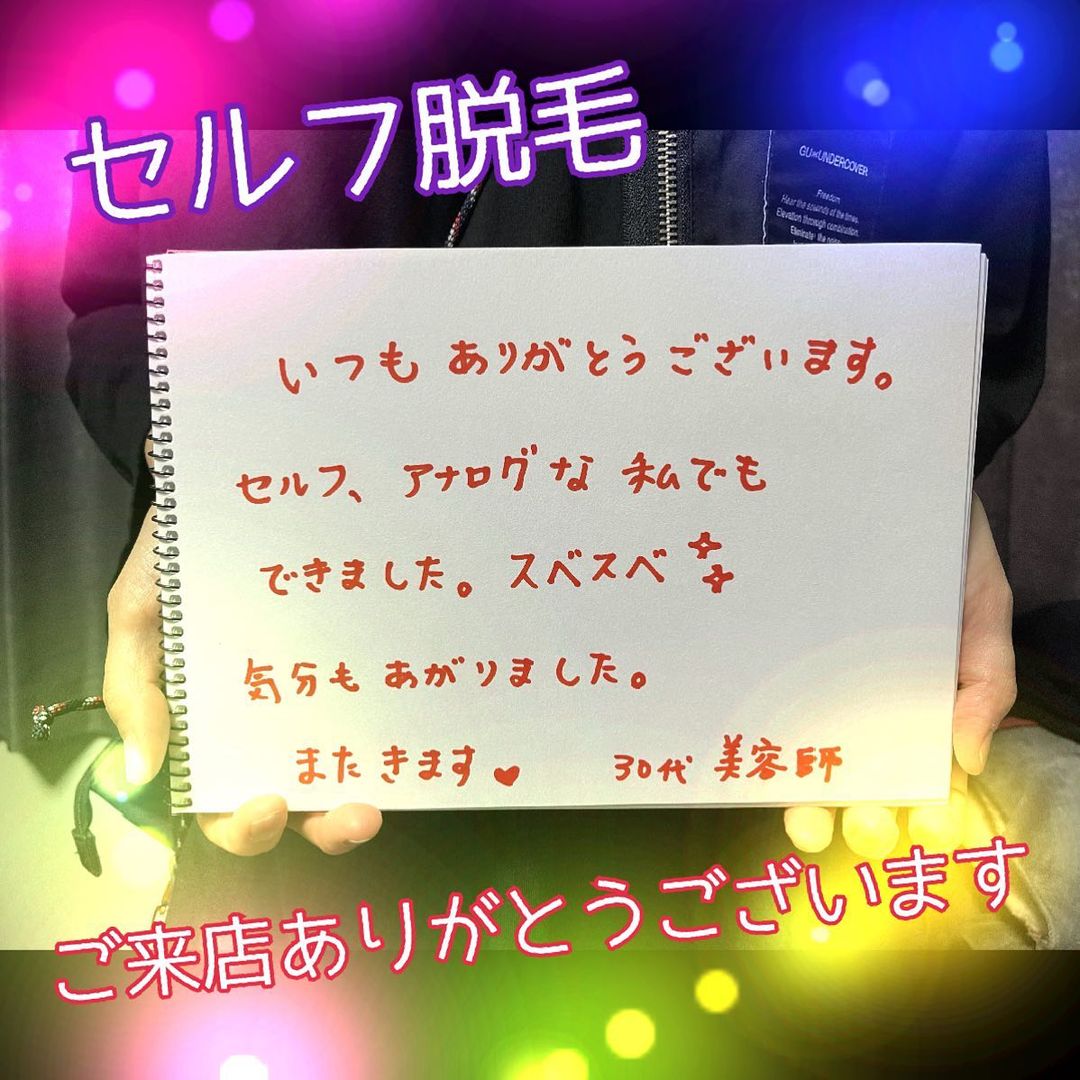 セルフ脱毛
GU×UNDERCOVER
Freedom
Hear the sounds of the times.
Elevation through combination.
Eliminate the noise
いつもありがとうございます。
セルフ、アナログな私でも
できました。スベスベ
気分もあがりました。
またきます♥ 30代 美容師
ご来店ありがとうございます